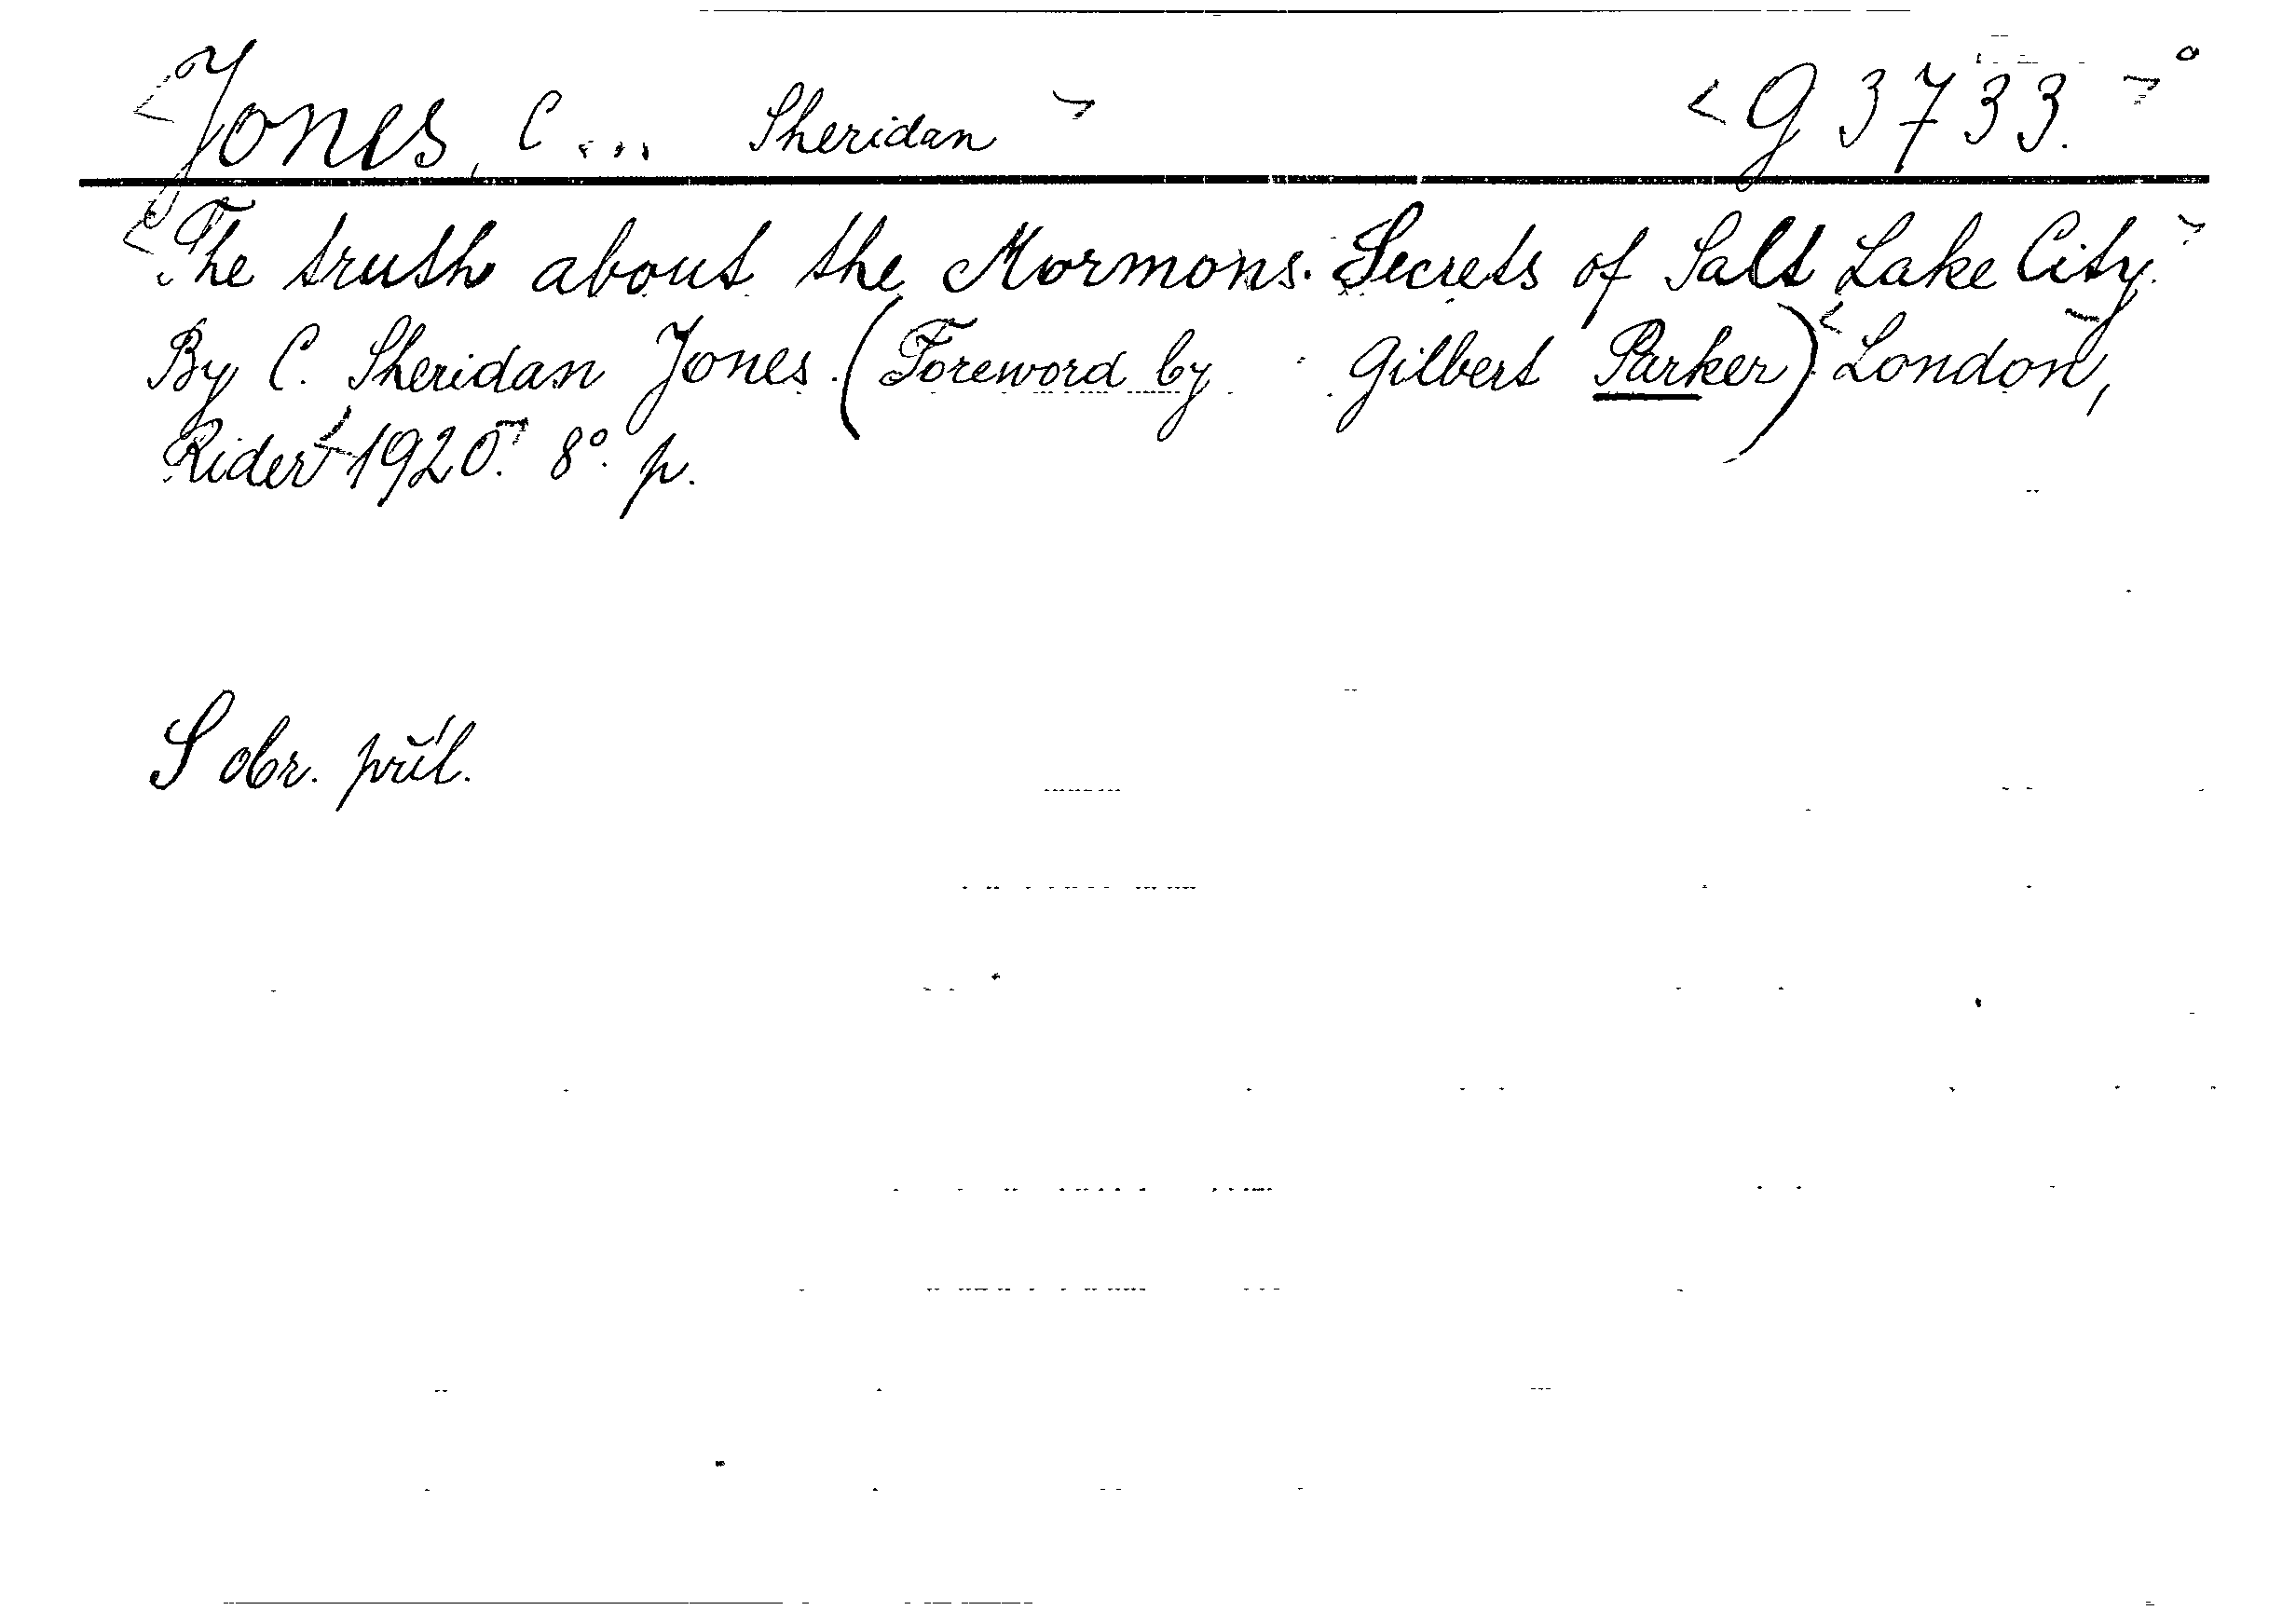 <Jones, C... Sheridan> <G 3733.>°
<The truth about the Mormons. Secrets of Salt Lake City.>
By C. Sheridan Jones. (Foreword by Gilbert Parker) <London>,
Rider <1920>. 8°. p.
S obr. příl.